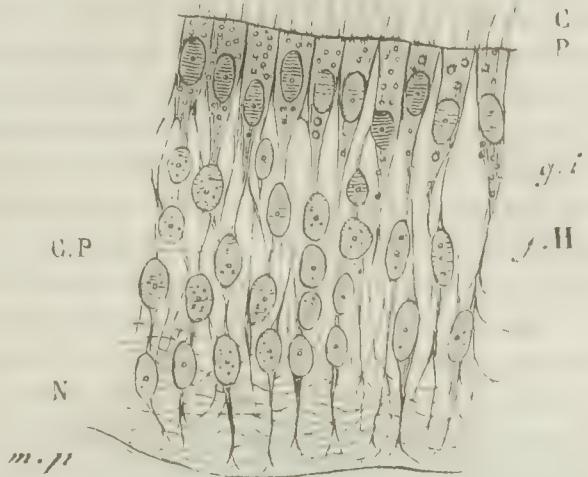 C
P
g.i
f.H
C.P
N
m.p